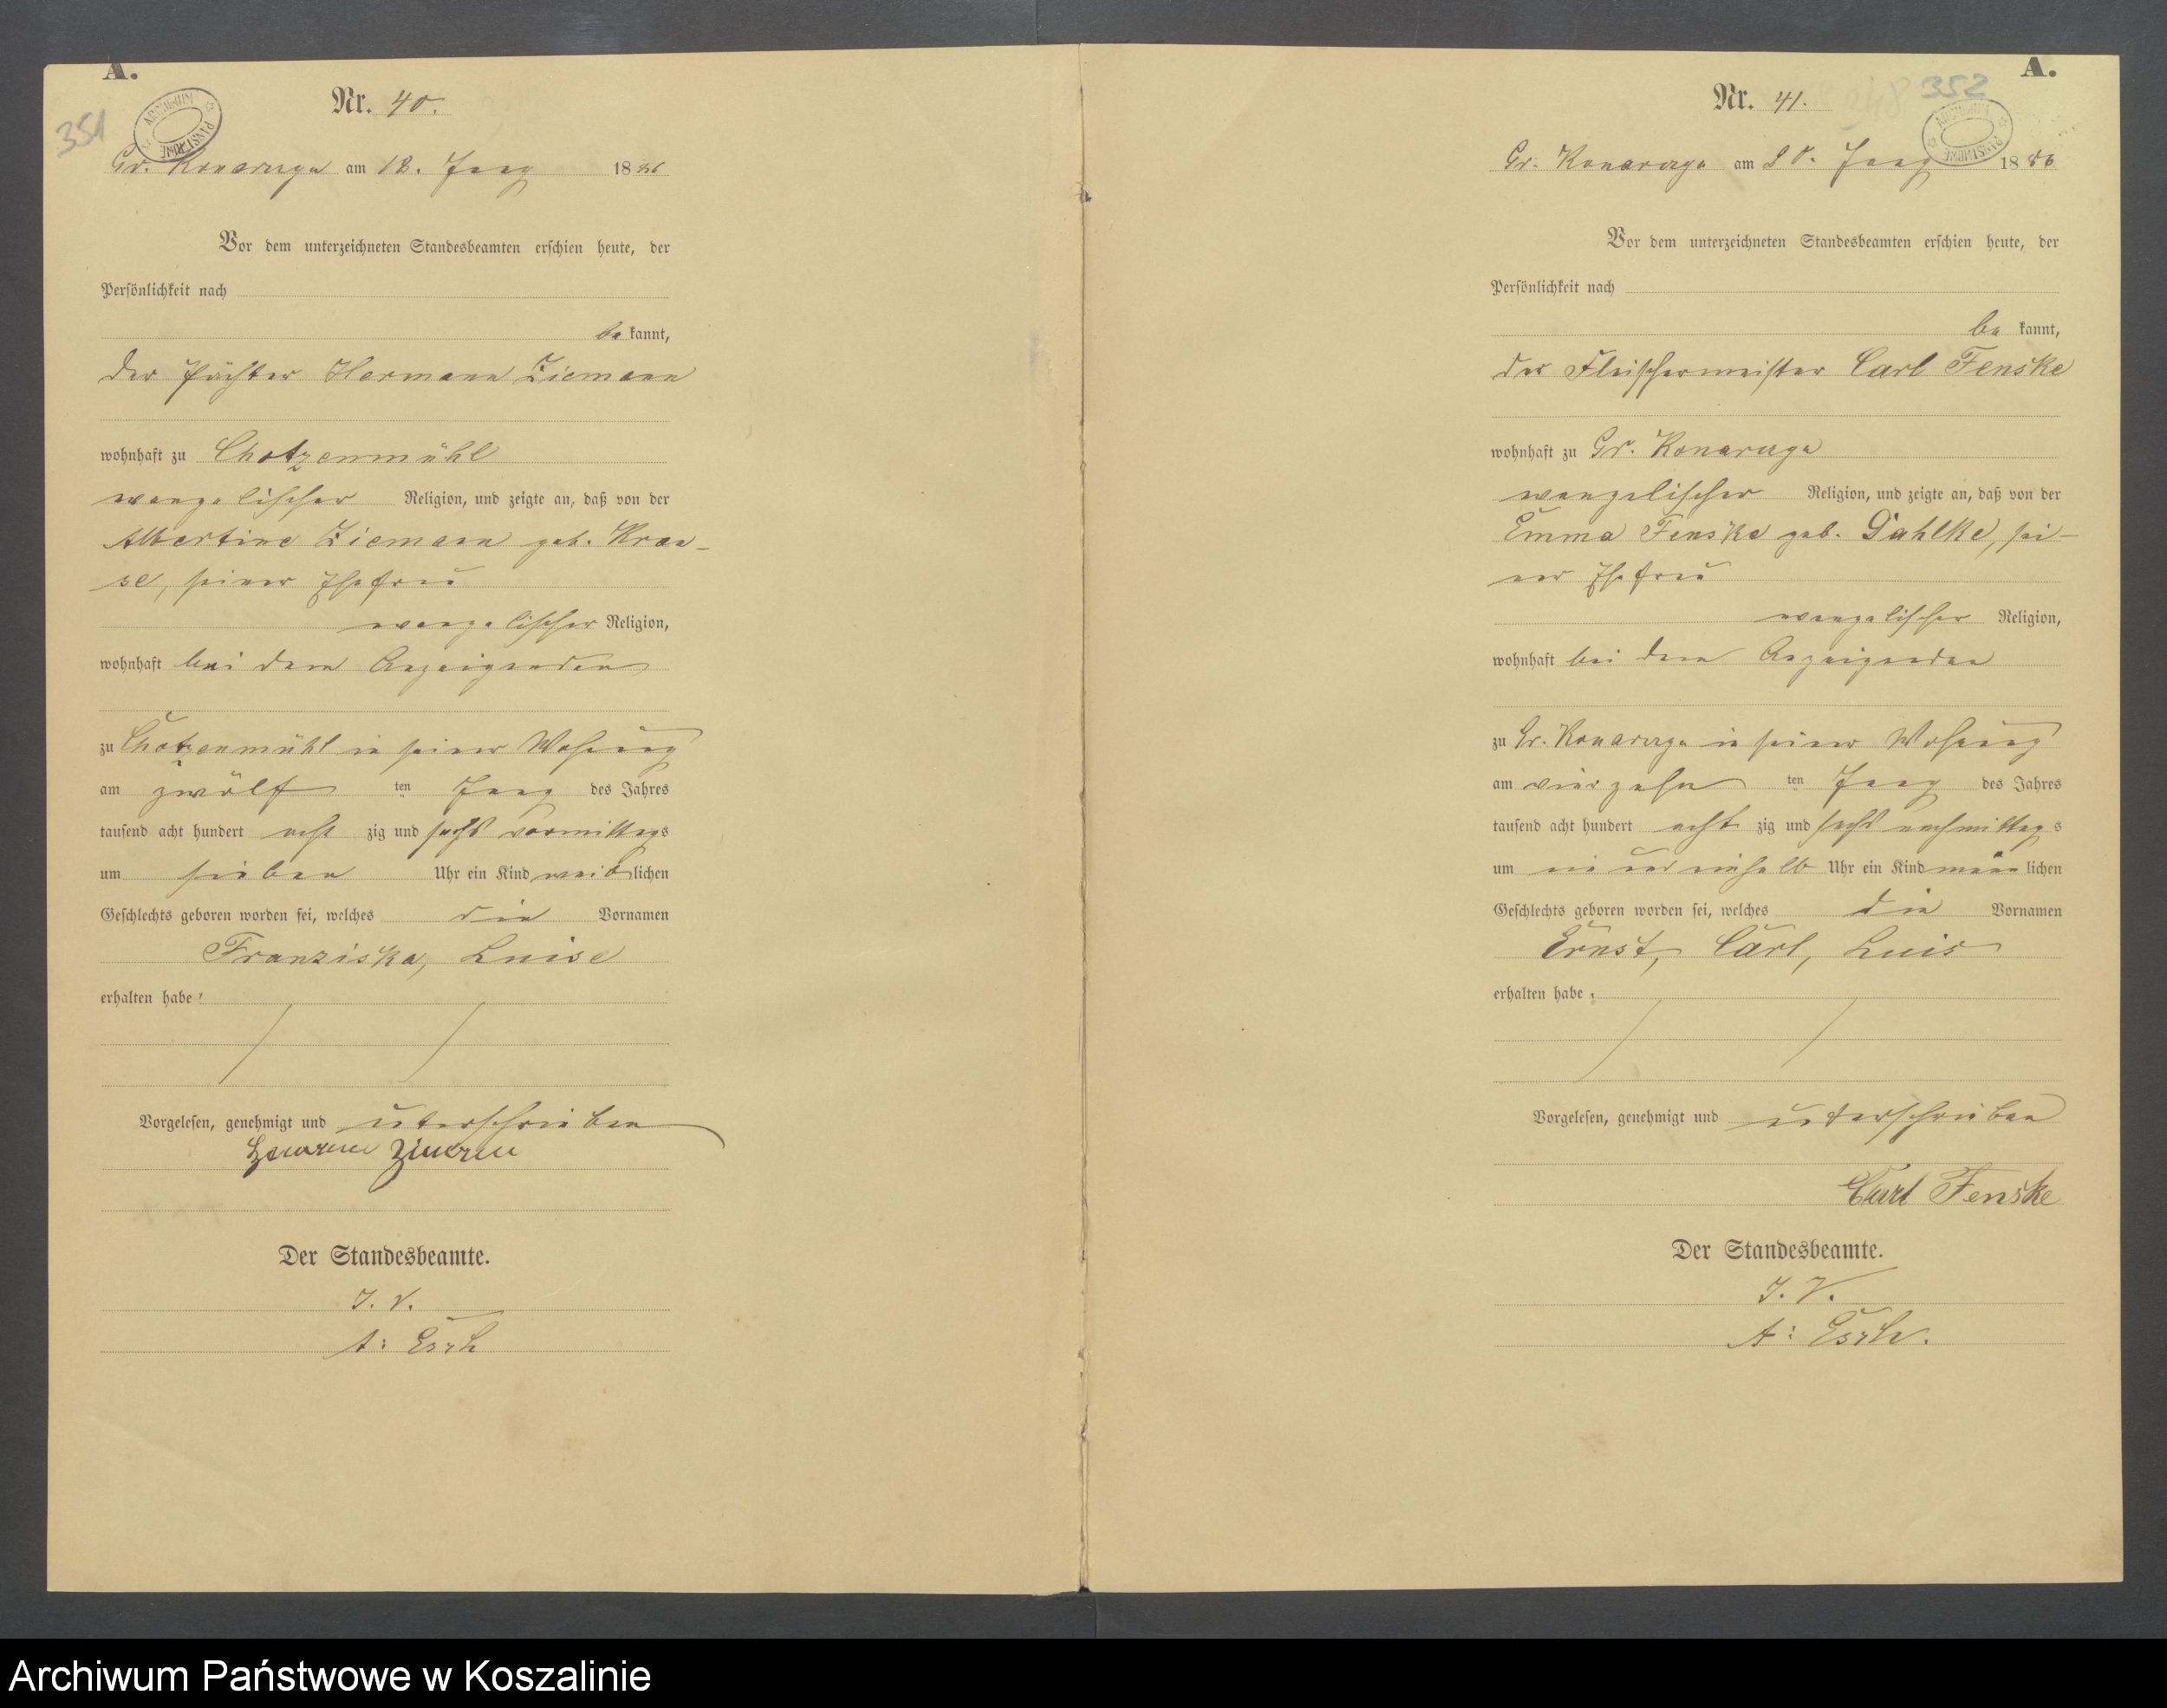 A.
351
ARCHIWUM PAŃSTWOWE
Nr. 40.
Gr. Konarczyn am 18. Juny 1886
Vor dem unterzeichneten Standesbeamten erschien heute, der
Persönlichkeit nach
be kannt,
der Pächter Hermann Ziemann
wohnhaft zu Chotzenmühl
evangelischer Religion, und zeigte an, daß von der
Albertine Ziemann geb. Krau-
se, seiner Ehefrau
evangelischer Religion,
wohnhaft bei dem Anzeigenden
zu Chotzenmühl in seiner Wohnung
am zwölf ten Juny des Jahres
tausend acht hundert acht zig und sechs vormittags
um sieben Uhr ein Kind weiblichen
Geschlechts geboren worden sei, welches die Vornamen
Franziska, Luise
erhalten habe.
Vorgelesen, genehmigt und unterschrieben
Hermann Ziemann
Der Standesbeamte.
J. V.
A: Esch
A.
352
ARCHIWUM PAŃSTWOWE
Nr. 41.
Gr. Konarczyn am 20. Juny 1886
Vor dem unterzeichneten Standesbeamten erschien heute, der
Persönlichkeit nach
be kannt,
der Fleischermeister Carl Fenske
wohnhaft zu Gr. Konarczyn
evangelischer Religion, und zeigte an, daß von der
Emma Fenske geb. Dahlke, sei-
ner Ehefrau
evangelischer Religion,
wohnhaft bei dem Anzeigenden
zu Gr. Konarczyn in seiner Wohnung
am vierzehn ten Juny des Jahres
tausend acht hundert acht zig und sechs nachmittags
um ein und einhalb Uhr ein Kind männlichen
Geschlechts geboren worden sei, welches die Vornamen
Ernst, Carl, Luis
erhalten habe.
Vorgelesen, genehmigt und unterschrieben
Carl Fenske
Der Standesbeamte.
J. V.
A: Esch.
Archiwum Państwowe w Koszalinie